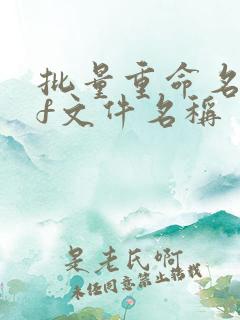 批量重命名
f文件名稱
是老氏啊
未经同意禁止转载